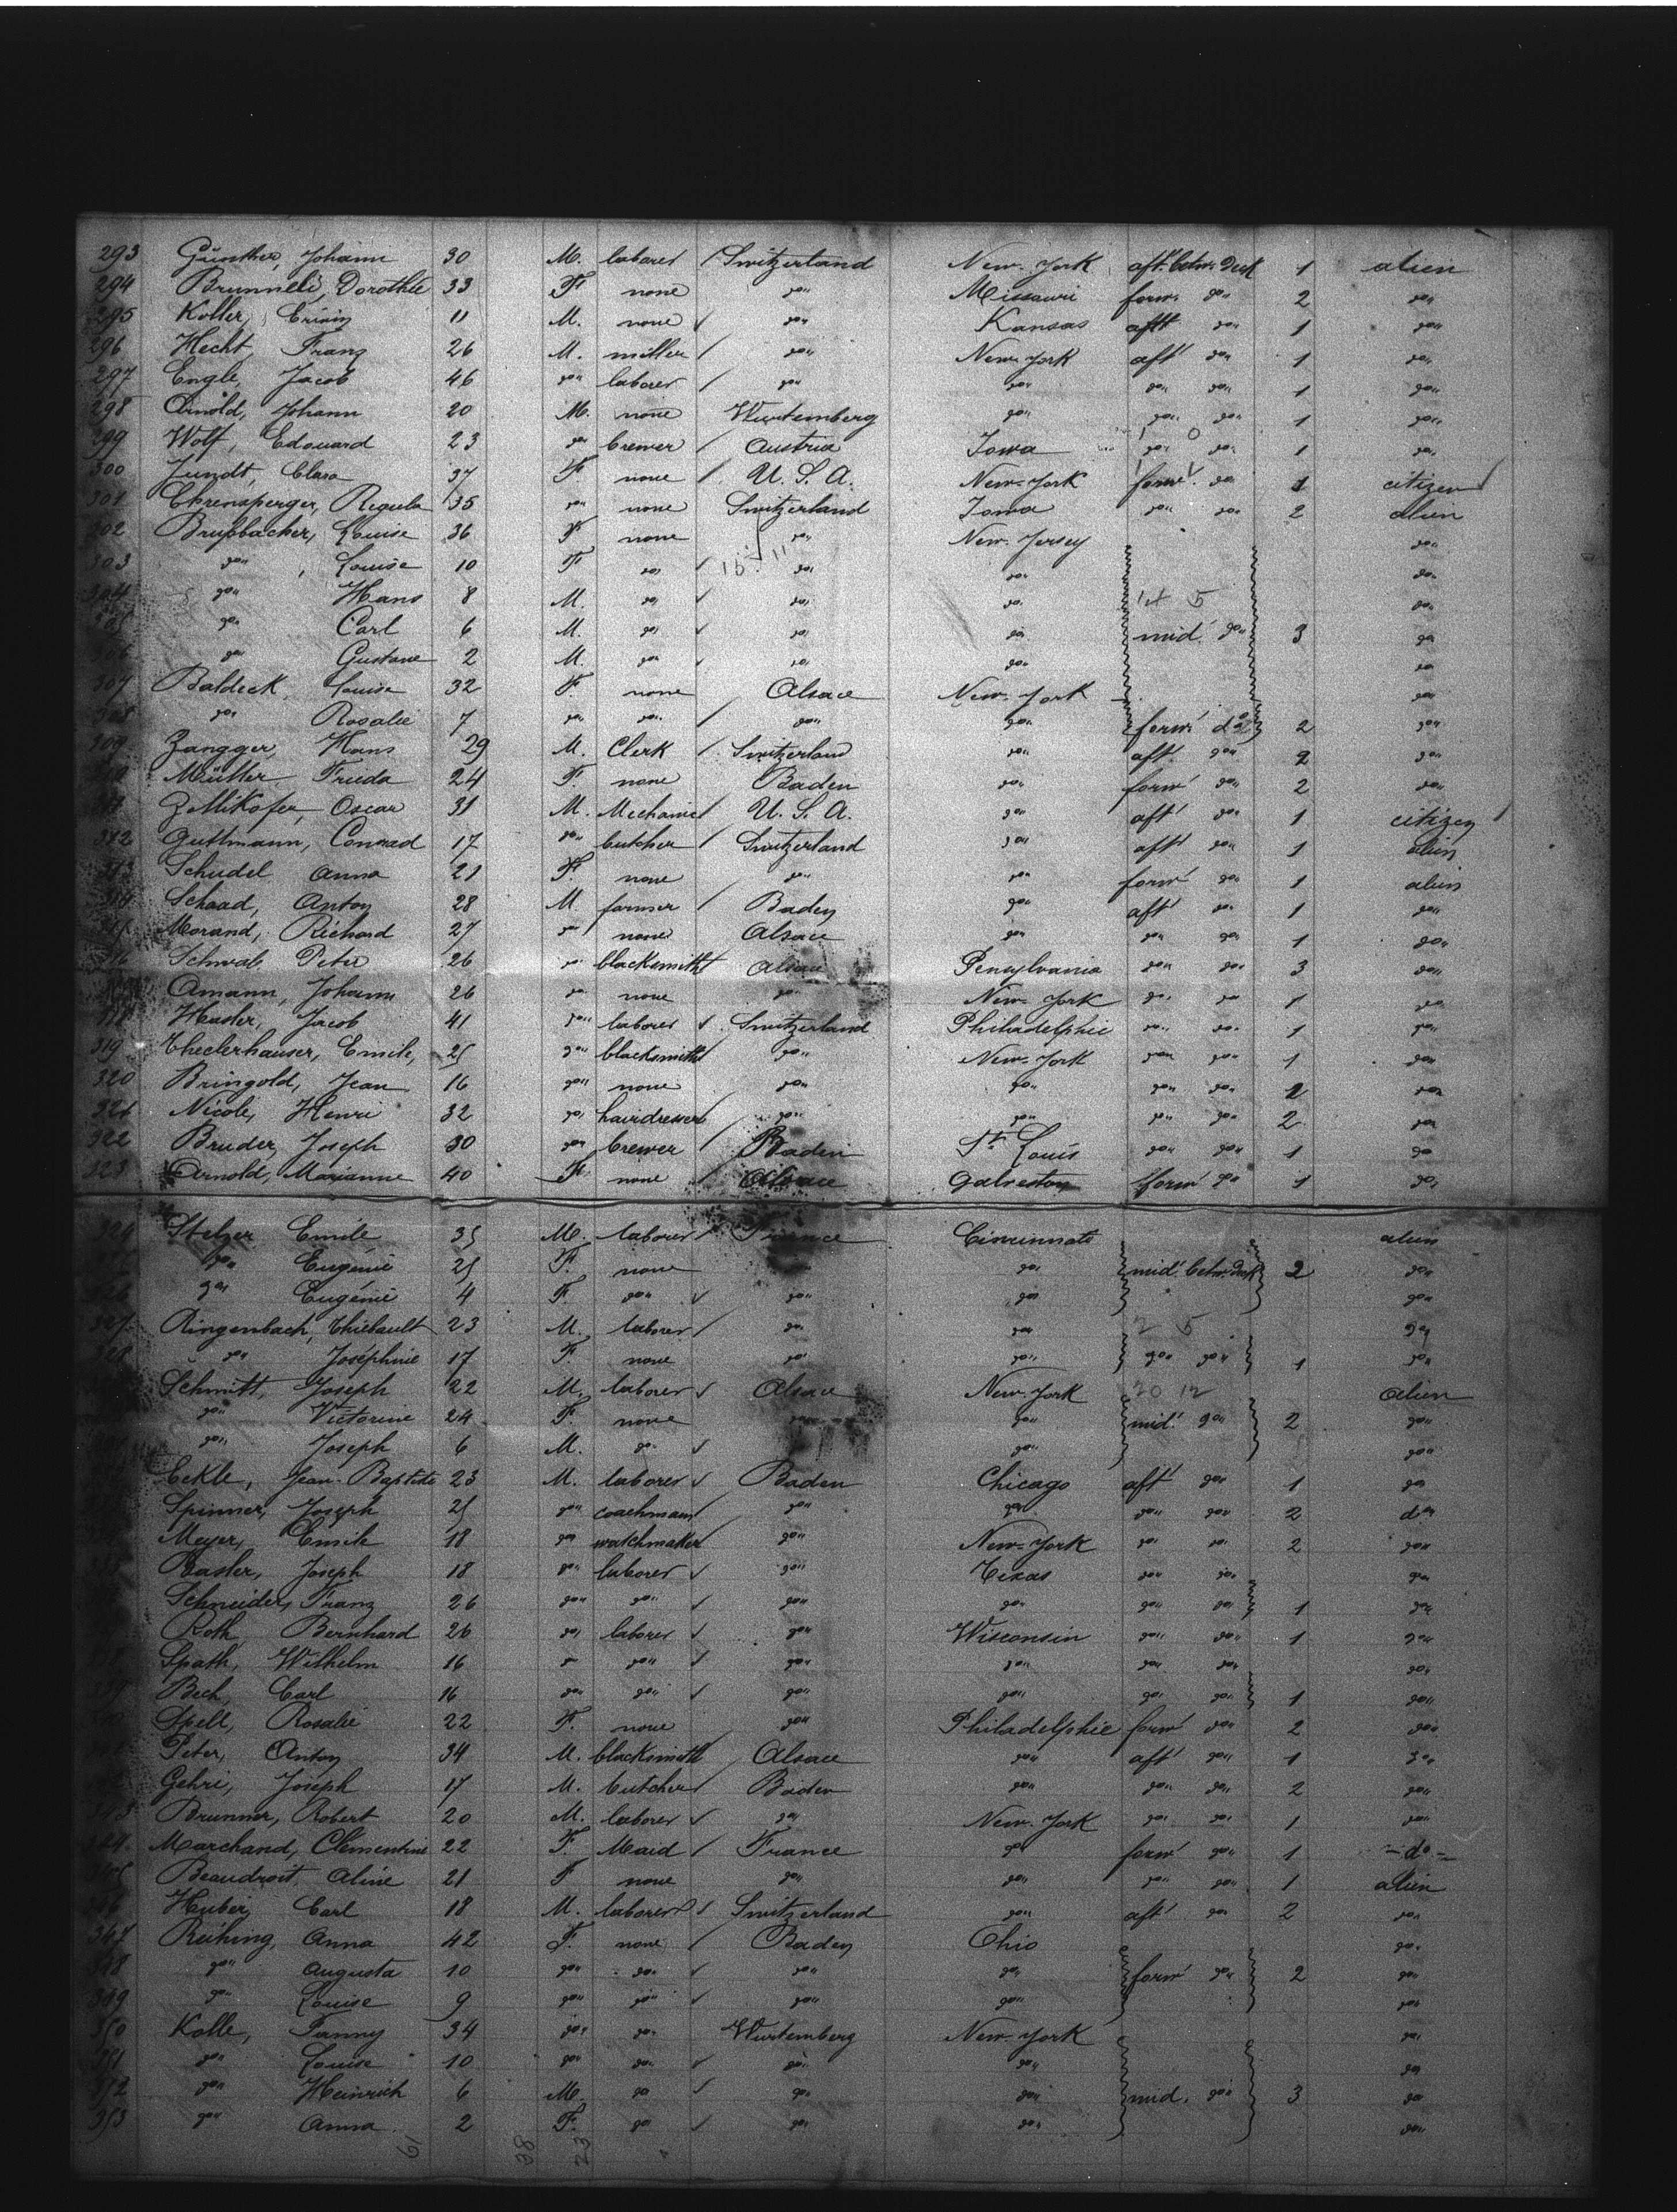 293 Günther, Johann 30 M. laborer / Switzerland New-York aft. betw. Deck 1 alien
294 Brunnelé, Dorothée 33 F. none do" Missouri forw. do" 2 do"
295 Koller, Erwin 11 M. none √ do" Kansas aft do" 1 do"
296 Hecht, Franz 26 M. miller / do" New-York aft' do" 1 do"
297 Engle, Jacob 46 do" laborer / do" do" do" do" 1 do"
298 Arnold, Johann 20 M. none Wurtemberg do" do" do" 1 do"
299 Wolf, Edouard 23 do" brewer / Austria Iowa do" do" 1 do"
300 Jundt, Clara 37 F. none / U. S. A. New-York forw' do" 1 citizen
301 Ehrensperger, Regula 35 do" none Switzerland Iowa do" do" 2 alien
302 Brußbacher, Louise 36 F none do" New-Jersey do"
303 do", Louise 10 F do" √ do" do" do"
304 do" Hans 8 M. do" √ do" do" do"
305 do" Carl 6 M. do" √ do" do" mid' do" 3 do"
306 do" Gustave 2 M. do" √ do" do" do"
307 Baldeck, Louise 32 F none Alsace New-York do"
308 do" Rosalie 7 do" do" / do" do" forw' do 2 do"
309 Zangger, Hans 29 M. Clerk / Switzerland do" aft' do" 2 do"
310 Müller, Frieda 24 F. none Baden do" forw' do" 2 do"
311 Zollikofer, Oscar 31 M. Mechanic / U. S. A. do" aft' do" 1 citizen
312 Guttmann, Conrad 17 do" butcher / Switzerland do" aft' do" 1 alien
313 Schudel Anna 21 F. none do" do" forw' do" 1 alien
314 Schaad, Anton 28 M farmer / Baden do" aft' do" 1 do"
315 Morand, Richard 27 do" none Alsace do" do" do" 1 do"
316 Schwab Peter 26 do" blacksmith / Alsace Pensylvania do" do" 3 do"
317 Amann, Johann 26 do" none do" New-York do" do" 1 do"
318 Hasler, Jacob 41 do" laborer √ Switzerland Philadelphie do" do" 1 do"
319 Thelerhauser, Emile, 25 do" blacksmith / do" New-York do" do" 1 do"
320 Bringold, Jean 16 do" none do" do" do" do" 2 do"
321 Nicole, Henri 32 do" hairdresser / do" do" do" do" 2 do"
322 Bruder, Joseph 30 do" brewer / Baden St. Louis do" do" 1 do
323 Arnold, Marianne 40 F. none / Alsace Galveston forw' do" 1 do"
324 Stelzer Emile 35 M. laborer / France Cincinnati alien
do" Eugénie 25 F. none do" mid' betw. Deck 2 do"
do" Eugénie 4 F. do" √ do" do" do"
327 Ringenbach, Thiébault 23 M. laborer / do" do" 2 5 do"
328 do" Joséphine 17 F. none do" do" do" do" 1 do"
Schmitt, Joseph 22 M. laborer √ Alsace New-York 20 12 alien
do" Victorine 24 F. none do" do" mid' do" 2 do"
do" Joseph 6 M. do" √ do" do"
Eckle, Jean-Baptiste 23 M. laborer √ Baden Chicago aft' do" 1 do
Spinner, Joseph 25 do" coachman / do" do" do" do" 2 do"
Meyer, Emile 18 do" watchmaker / do" New-York do" do" 2 do"
Basler, Joseph 18 do" laborer √ do" Texas do" do" do"
Schneider, Franz 26 do" do" √ do" do" do" do" 1 do"
Roth Bernhard 26 do" laborer √ do" Wisconsin do" do" 1 do"
Spath, Wilhelm 16 do" do" √ do" do" do" do" do"
Bech, Carl 16 do" do" √ do" do" do" do" 1 do"
Spell, Rosalie 22 F. none do" Philadelphie forw' do" 2 do"
Peter, Anton 34 M. blacksmith / Alsace do" aft' do" 1 do"
Gehri, Joseph 17 M. butcher / Baden do" do" do" 2 do"
343 Brunner, Robert 20 M. laborer √ do" New-York do" do" 1 do"
344 Marchand, Clémentine 22 F. Maid / France do forw' do" 1 -do-
345 Beaudroit, Aline 21 F none do" do" do" do" 1 alien
346 Huber, Carl 18 M. laborer / Switzerland do" aft' do" 2 do"
347 Reihing, Anna 42 F. none / Baden Ohio do"
348 do" Augusta 10 do" do" √ do" do" forw' do" 2 do"
349 do" Louise 9 do" do" √ do" do" do"
350 Kolle, Fanny 34 do" do" Wurtemberg New-York do"
351 do" Louise 10 do" do" √ do" do" do
352 do" Heinrich 6 M. do √ do" do" mid. do" 3 do
353 do" Anna 2 F. do √ do" do" do"
61 38 23